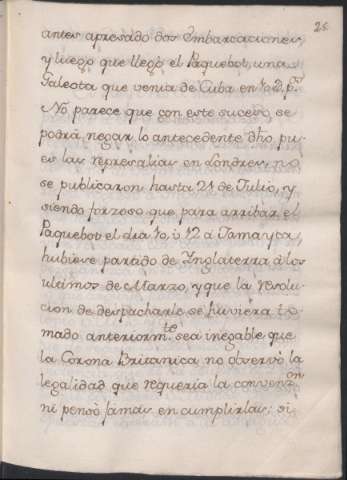 25
antes apresado dos Imbarcaciones,
y luego que llegò el Paquebot, una
Galeota que venia de Cuba en
No parece que con este suceso, se
podrà negar lo antecedente dho pu-
es las represalias en Londres, no
se publicaron hasta 21 de Julio, y
siendo forzoso que para arribar el
Paquebot el dia 10 ù 12 à Jamayca,
hubiese partido de Inglaterra à los
ultimos de Marzo, y que la resolu-
cion de despacharle se huviera to-
mado anteriorm.te sea inegable que
la Corona Britanica no observò la
legalidad que requeria la convenz.on
ni pensò jamas en cumplirlas; si